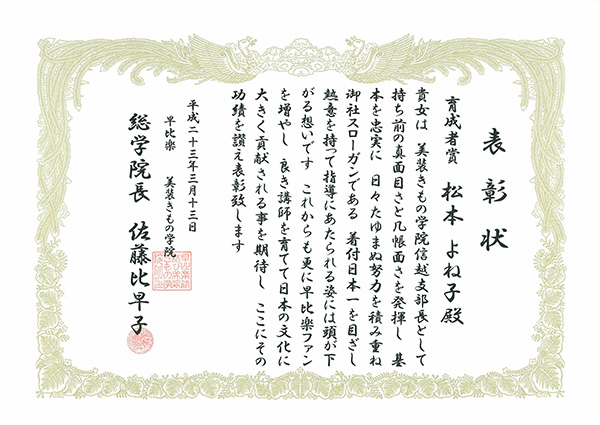 表彰状
育成者賞　松本　よね子殿
貴女は　美装きもの学院信越支部長として
持ち前の真面目さと几帳面さを発揮し　基
本を忠実に　日々たゆまぬ努力を積み重ね
御社スローガンである　着付日本一を目ざし
熱意を持って指導にあたられる姿には頭が下
がる想いです　これからも更に早比楽ファン
を増やし　良き講師を育てて日本の文化に
大きく貢献される事を期待し　ここにその
功績を讃え表彰致します
平成二十三年三月十三日
早比楽　美装きもの学院
総学院長　佐藤比早子